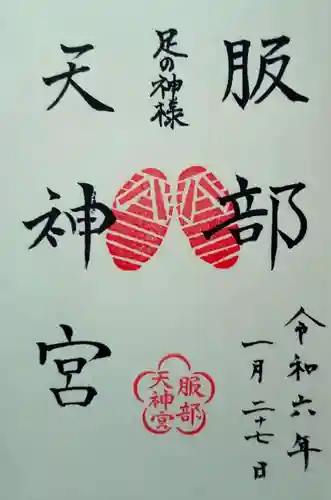 令和六年
一月二十七日
服部
足の神様
天神宮
服部
天神宮